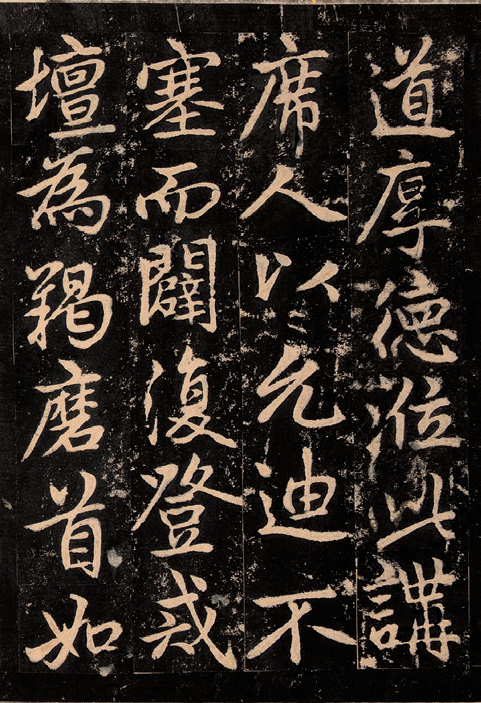 道厚德涖此講
席人以允迪不
塞而闢復登戒
壇為羯磨首如